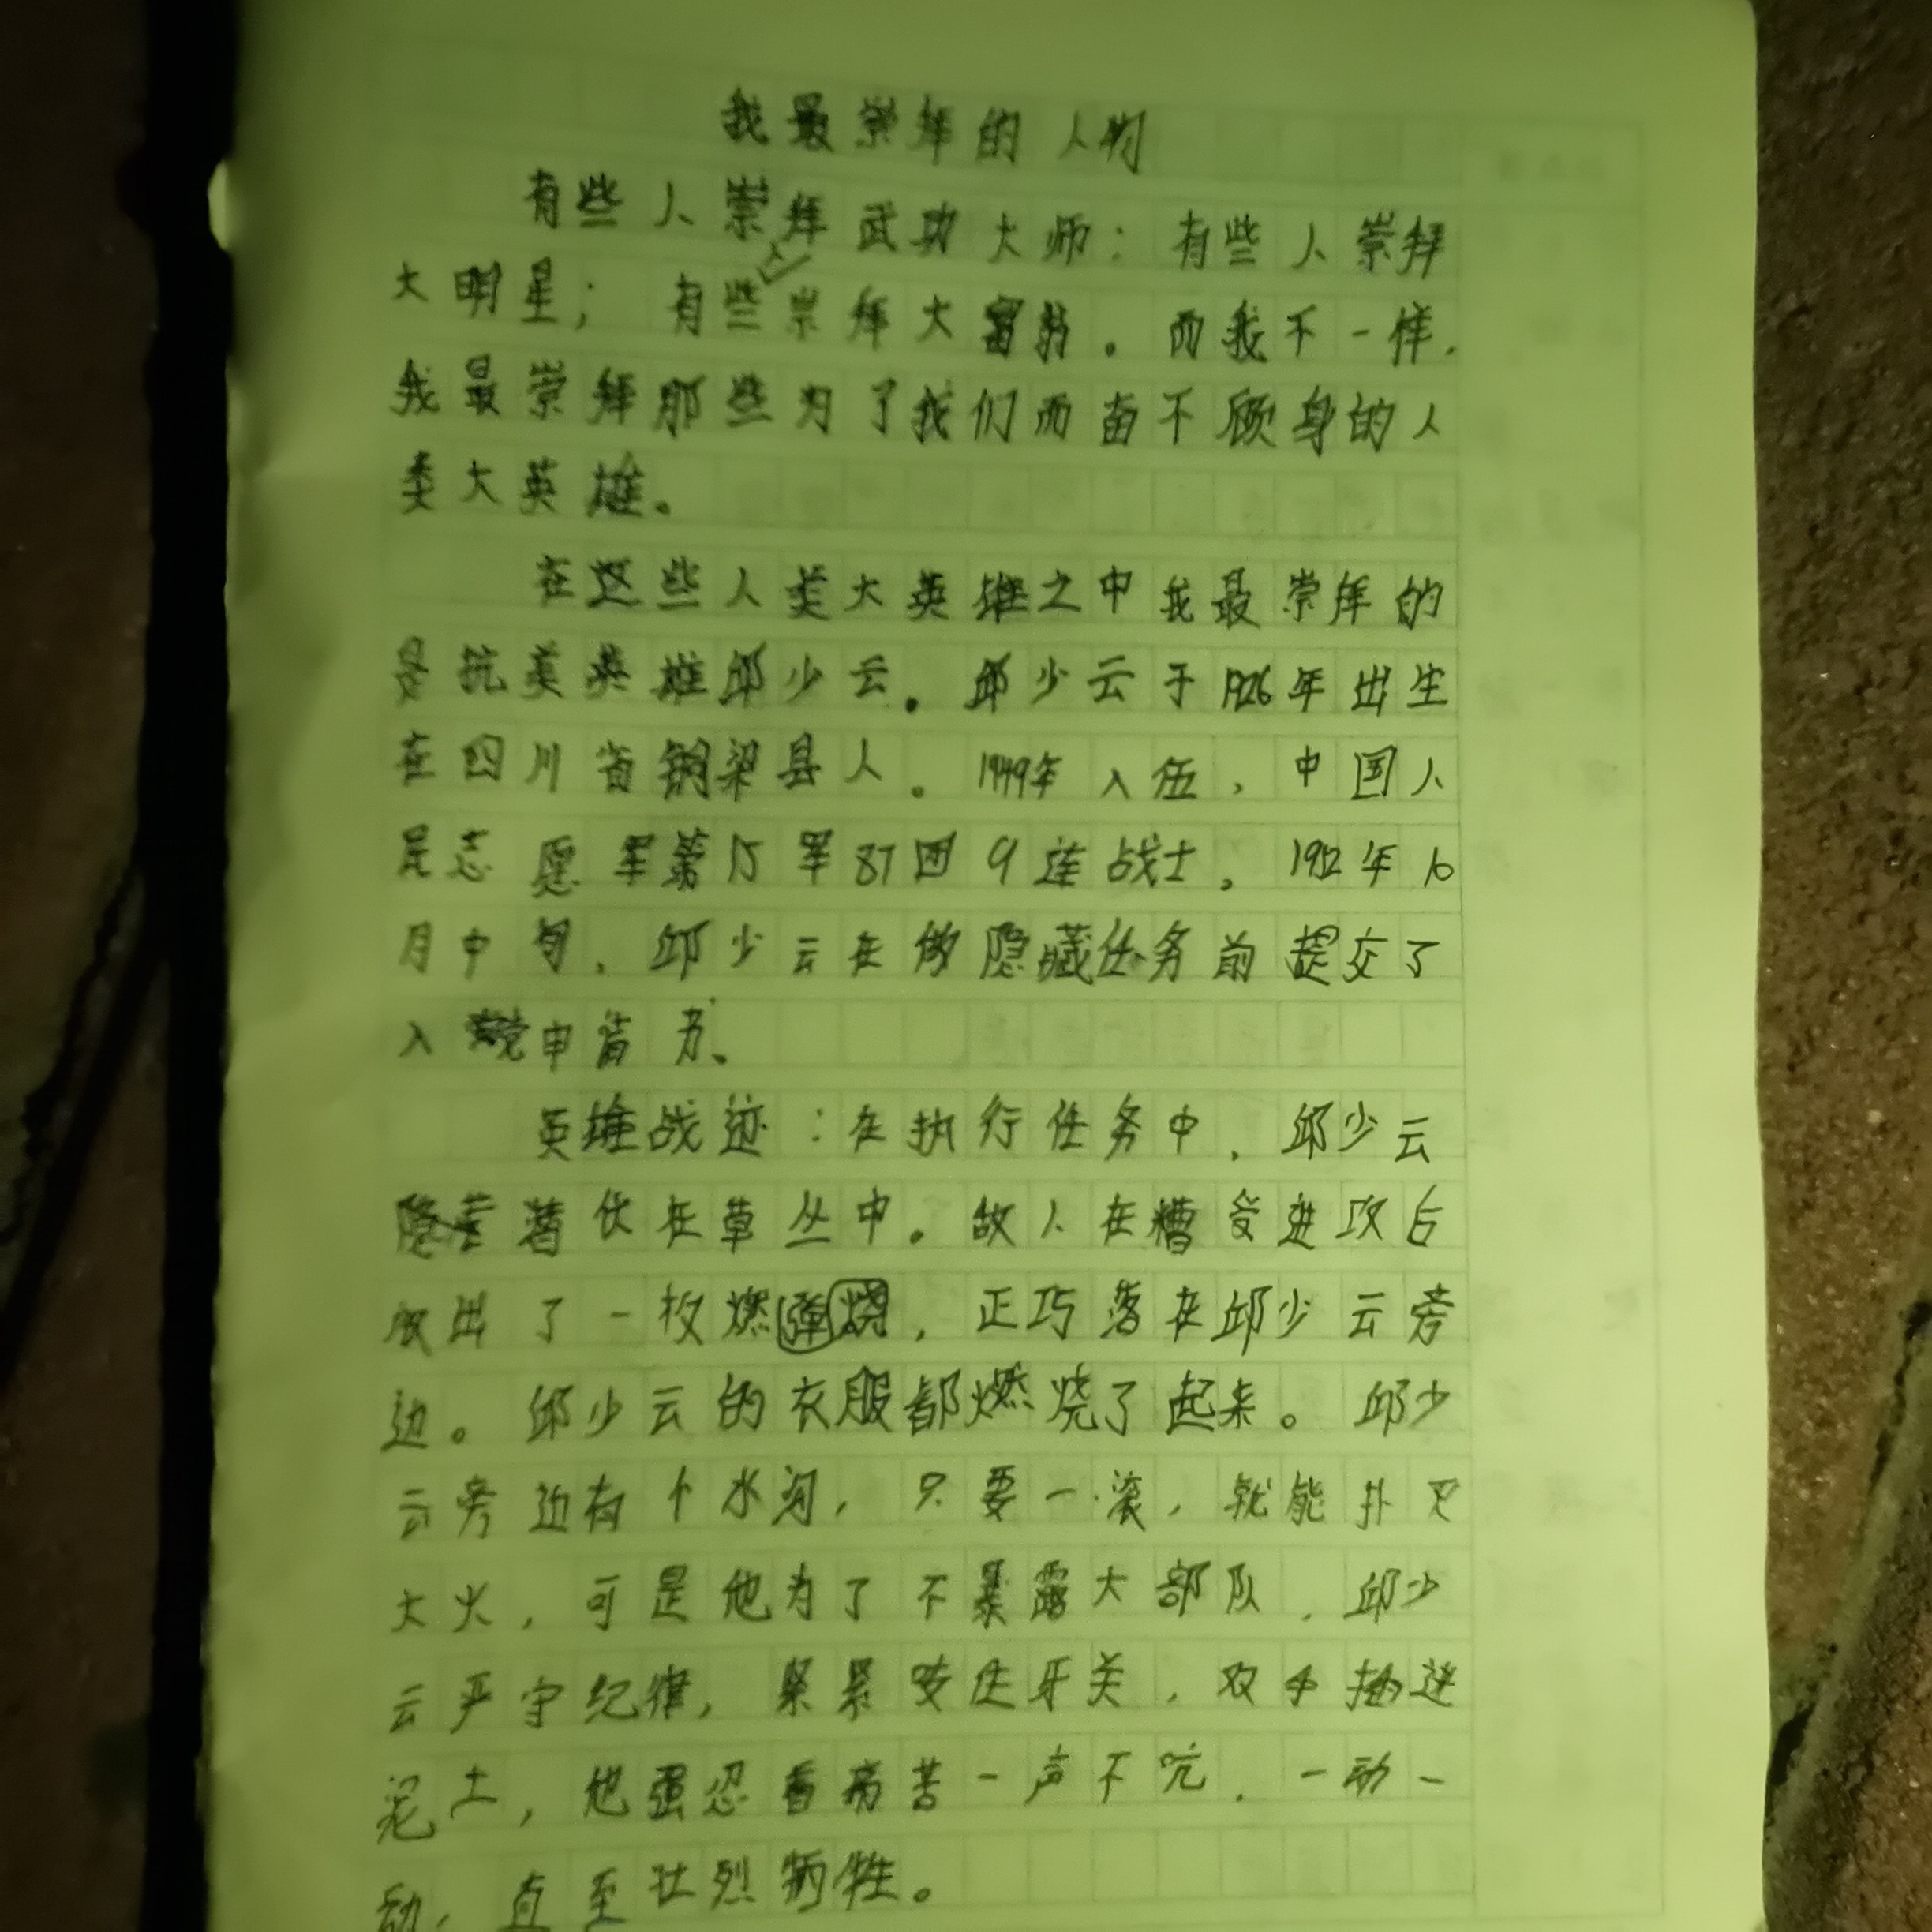 我最崇拜的人物
有些人崇拜武功大师；有些人崇拜
大明星；有些人崇拜大富翁。而我不一样，
我最崇拜那些为了我们而奋不顾身的人
类大英雄。
在这些人类大英雄之中我最崇拜的
是抗美英雄邱少云。邱少云于1926年出生
在四川省铜梁县人。1949年入伍，中国人
民志愿军第15军87团9连战士。1952年10
月中旬，邱少云在做隐藏任务前提交了
入党申请书。
英雄战迹：在执行任务中，邱少云
隐潜伏在草丛中。敌人在糟受进攻后
放出了一枚燃弹烧，正巧落在邱少云旁
边。邱少云的衣服都燃烧了起来。邱少
云旁边有个水沟，只要一滚，就能扑灭
大火，可是他为了不暴露大部队，邱少
云严守纪律，紧紧咬住牙关，双手插进
泥土，他强忍着痛苦一声不吭，一动一
动，直至壮烈牺牲。